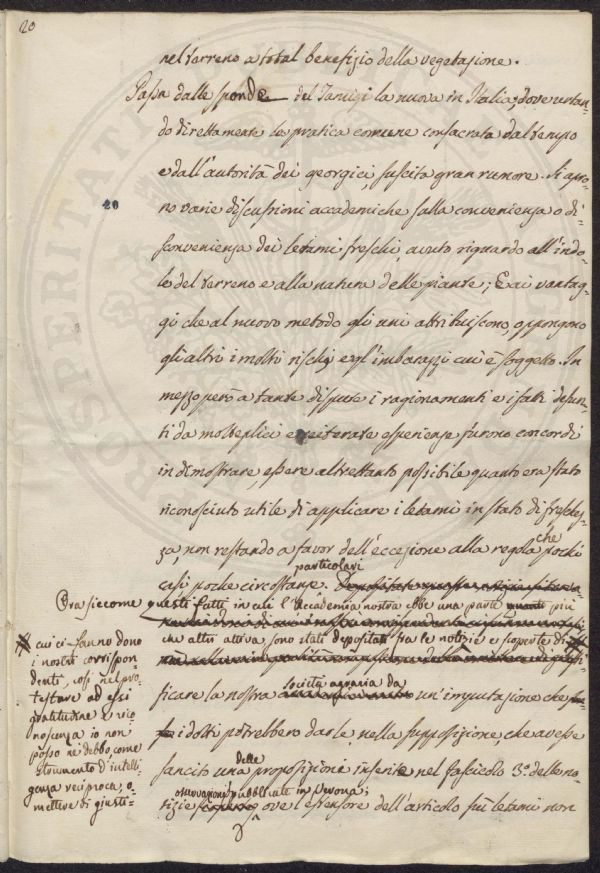 20
nel terreno a total benefizio della vegetazione.
Passa dalle sponde del Tamigi la nuova in Italia; dove urtan-
do direttamente la pratica comune consacrata dal tempo
e dall'autorità dei georgici, suscita gran rumore. Si apro-
20
no varie discussioni accademiche sulla convenienza o di-
sconvenienza dei letami freschi, avuto riguardo all'indo-
le del terreno e alla natura delle piante; E ai vantag-
gi che al nuovo metodo gli uni attribuiscono oppongono
gli altri i molti rischj e gl'imbarazzi cui è soggetto. In
mezzo però a tante dispute i ragionamenti e i fatti desun-
ti da molteplici e reiterate esperienze furono concordi
in dimostrare, essere altrettanto possibile quanto era stato
riconosciuto utile di applicare i letami in stato di freschez-
za, non restando a favor dell'eccezione alla regola che pochi
casi poche circostanze particolari.
Ora siccome questi fatti, in cui l'Accademia nostra ebbe una parte più
che altri attiva, sono stati depositati tra le notizie e scoperte di
cui ci fanno dono
i nostri corrispon
denti, così nel pro-
testare ad essi
gratitudine e rico
noscenza io non
posso nè debbo, come
strumento d'intelli
genza reciproca, o-
mettere di giusti-
ficare la nostra società agraria da un'imputazione che
i dotti potrebbero darle, nella supposizione, che avesse
sancito una delle proposizioni inserite nel fascicolo 3.º delle no-
tizie osservazioni pubblicate in Verona; ove l'estensore dell'articolo sui letami non